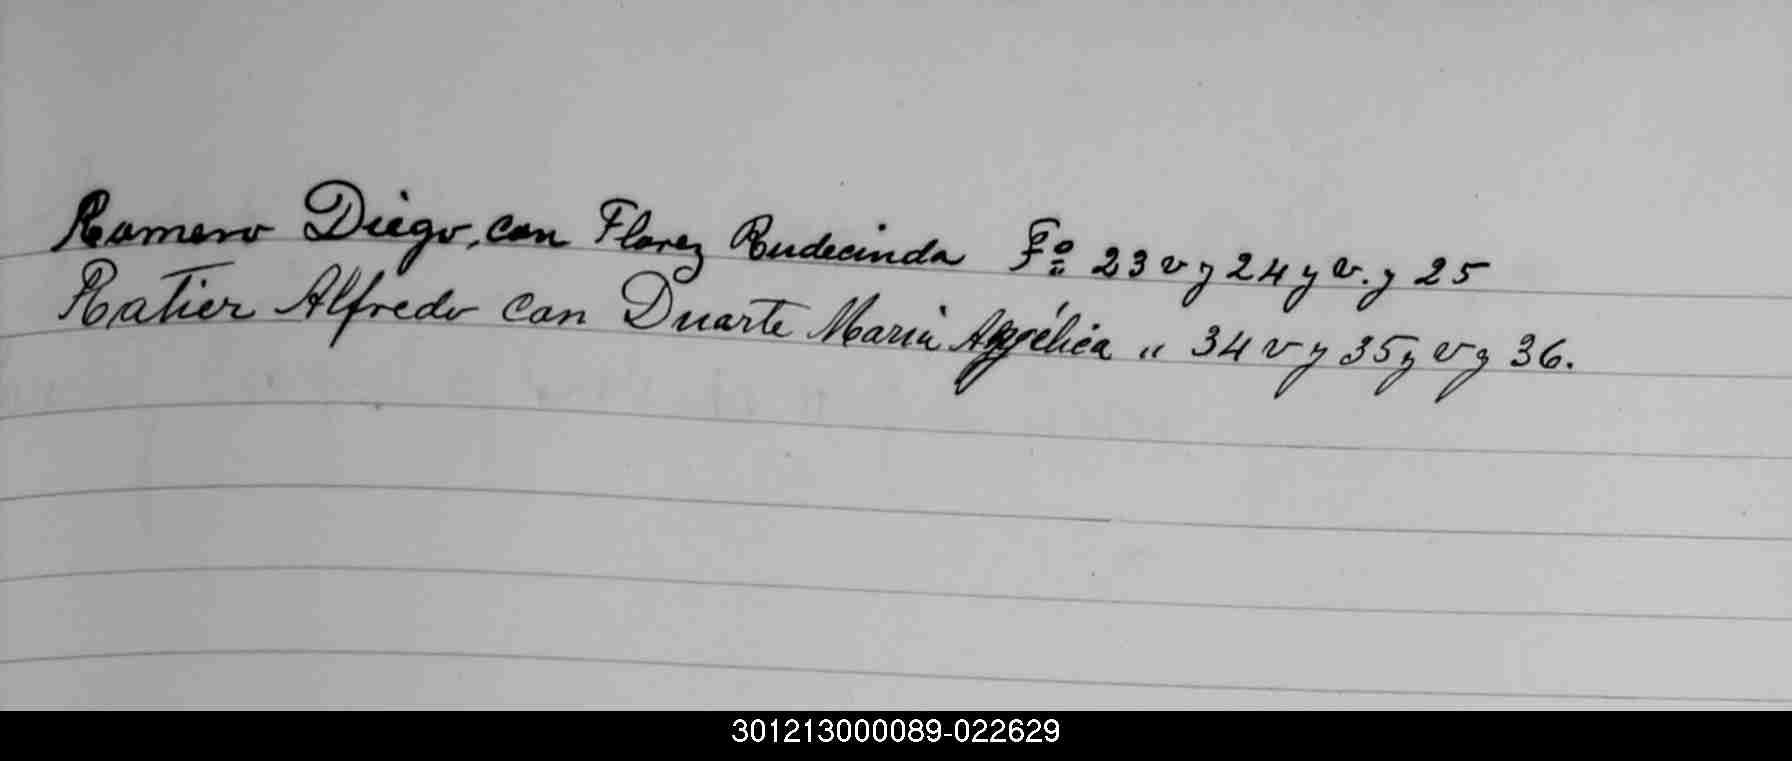 Romero Diego, con Florez Rudecinda Fº 23 v y 24 y v. y 25
Ratier Alfredo con Duarte Maria Angélica " 34 v y 35 y v y 36.
301213000089-022629